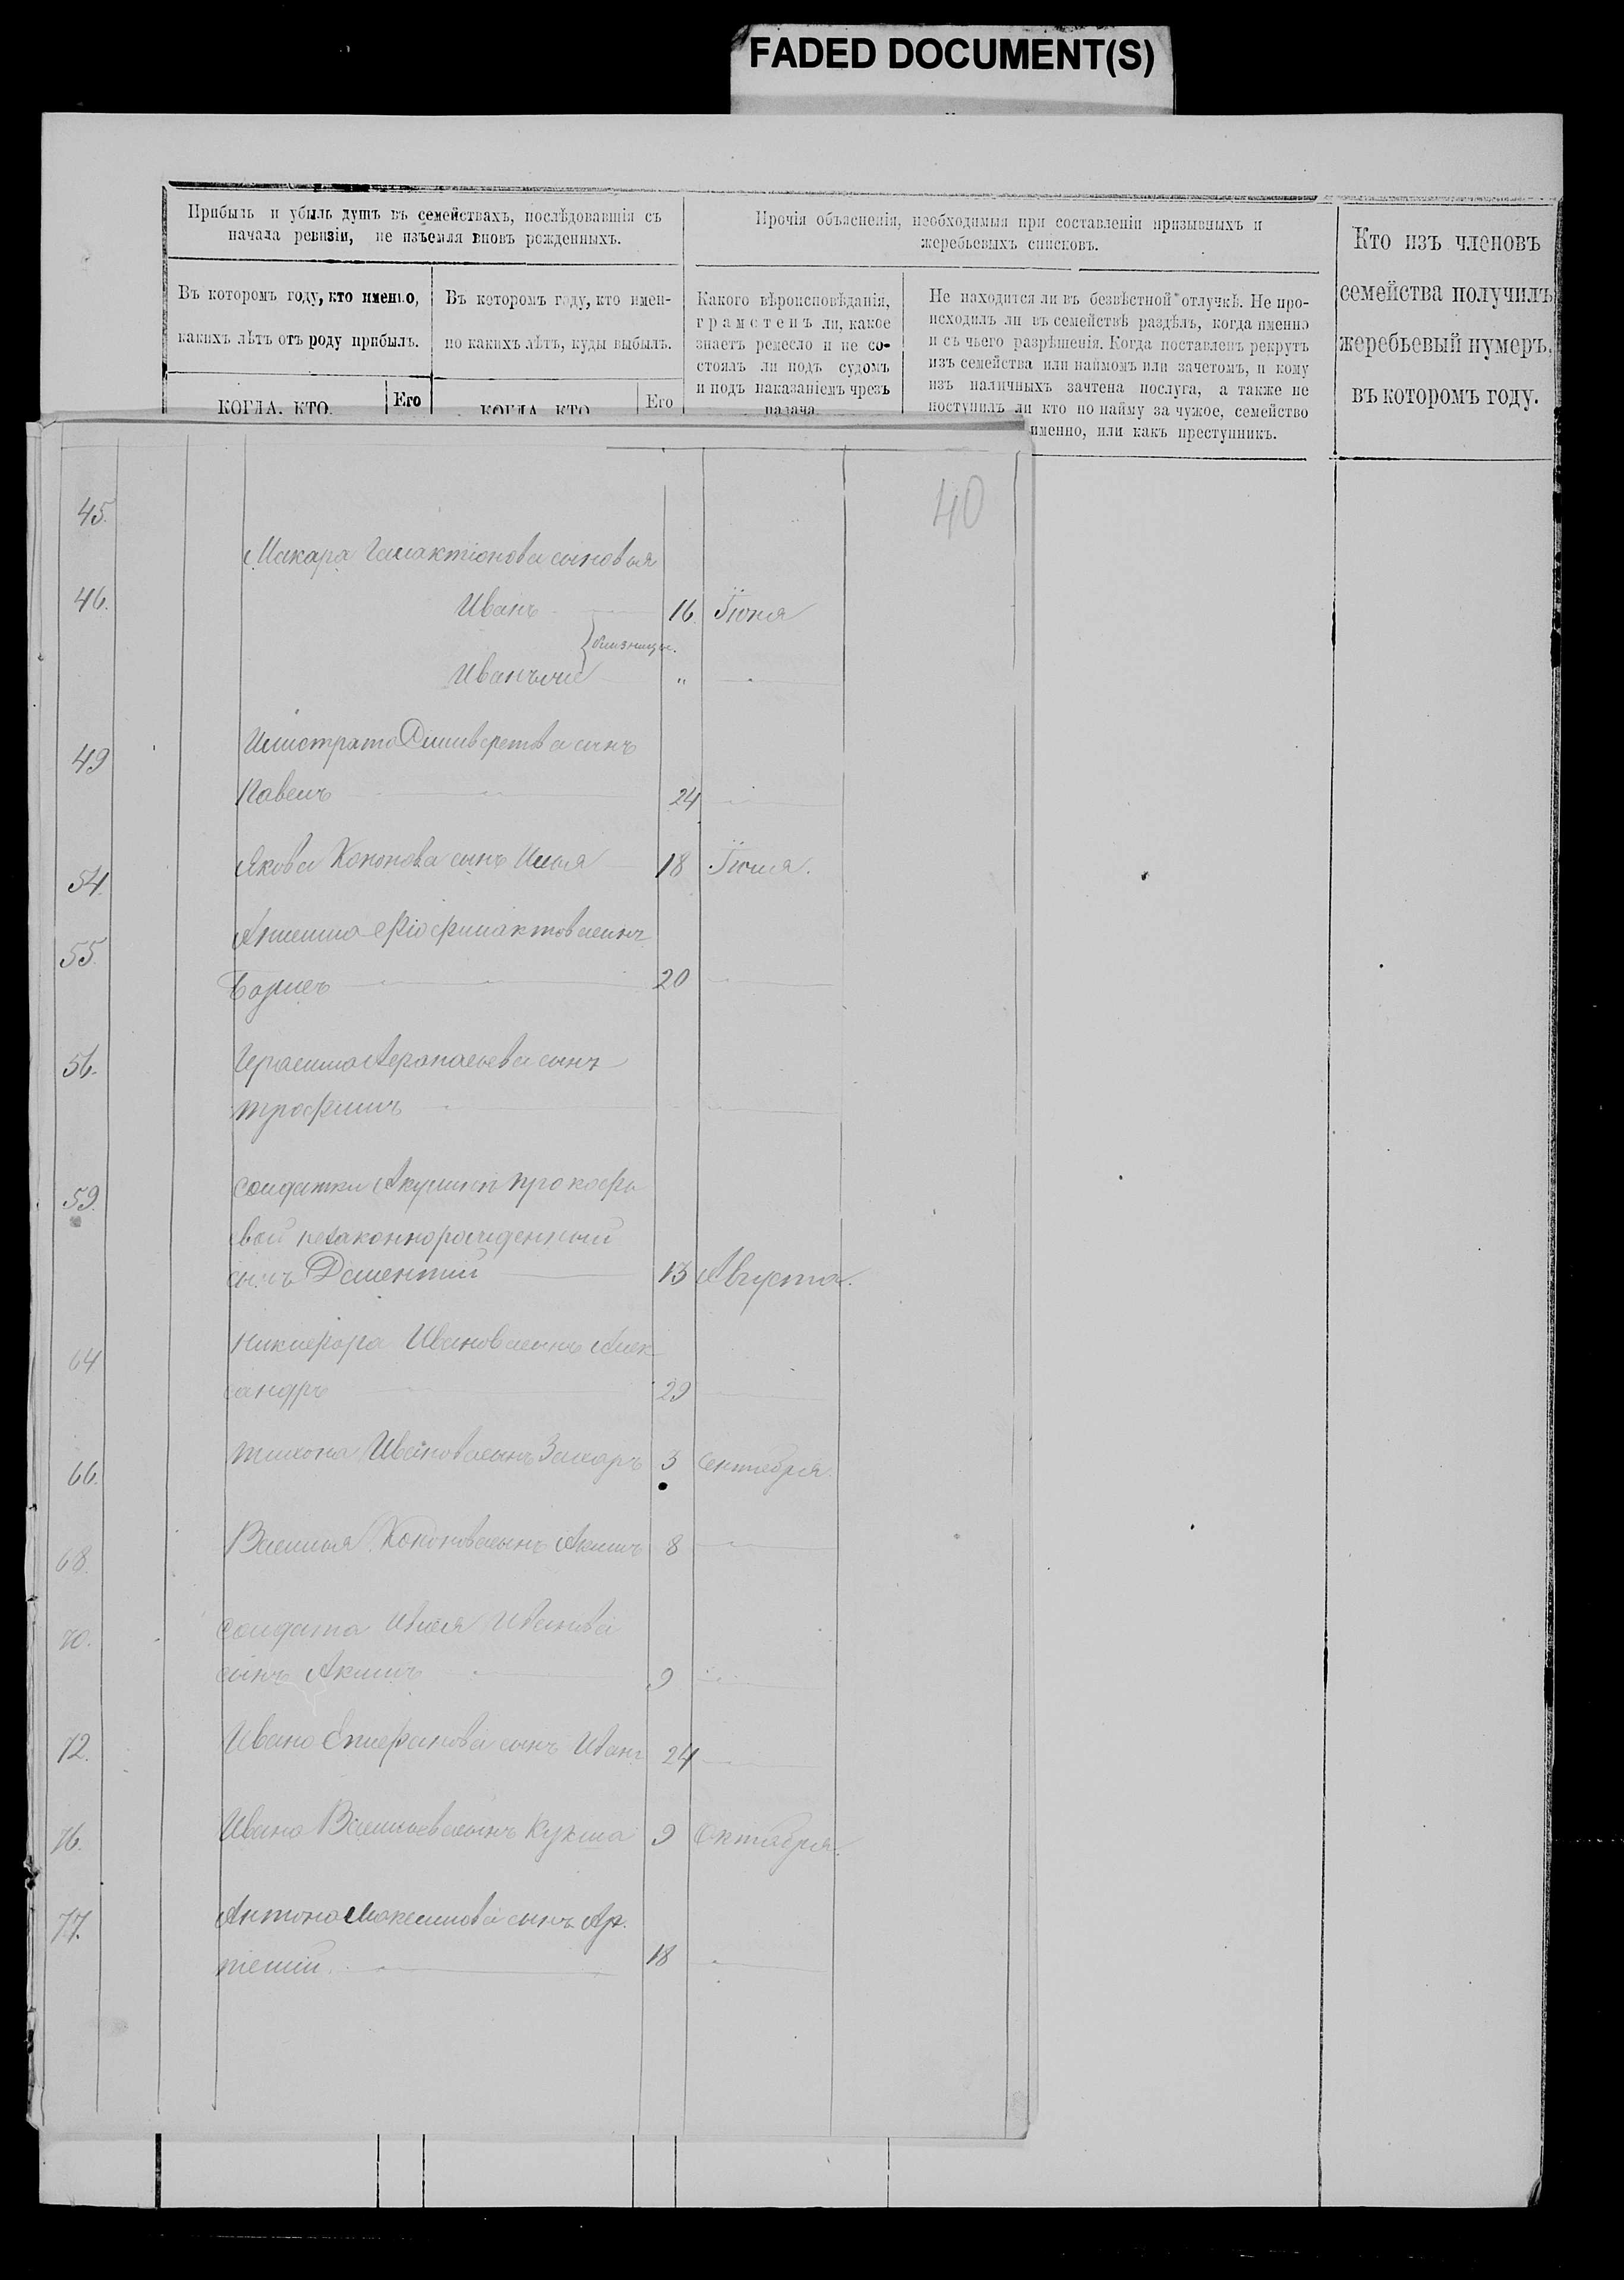 FADED DOCUMENT(S)
Прибыль и убыль душъ въ семействахъ, послѣдовавшія съ
начала ревизіи, не изъемля вновь рожденныхъ.
Въ которомъ году, кто именно,
какихъ лѣтъ отъ роду прибылъ.
КОГДА, КТО.
Его
Въ которомъ году, кто имен-
но какихъ лѣтъ, куды выбылъ.
КОГДА КТО
Его
Прочія объясненія, необходимыя при составленіи призывныхъ и
жеребьевыхъ списковъ.
Какого вѣроисповѣданія,
грамотенъ ли, какое
знаетъ ремесло и не со-
стоялъ ли подъ судомъ
и подъ наказаніемъ чрезъ
палача
Не находится ли въ безвѣстной отлучкѣ. Не про-
исходилъ ли въ семействѣ раздѣлъ, когда именно
и съ чьего разрѣшенія. Когда поставленъ рекрутъ
изъ семейства или наймомъ или зачетомъ, и кому
изъ наличныхъ зачтена послуга, а также не
поступилъ ли кто по найму за чужое, семейство
именно, или какъ преступникъ.
Кто изъ членовъ
семейства получилъ
жеребьевый нумеръ,
въ которомъ году.
40
45.
Макара Галактіонова сыновья
46. Иванъ 16. Іюня
близнецы.
"
49 сынъ
Павелъ 24
54. Якова Кононова сынъ Илья 18 Іюля.
55. сынъ
Борисъ 20
56. Герасима Афонасьева сынъ
Трофимъ
59. Солдатки Акулины Прокофь
евой незаконнорожденный
сынъ 13 Августа.
64 Никифора Иванова сынъ Алек
сандръ 29
66. Тихона Иванова сынъ Захаръ 3 Сентября.
68. Василья Кононова сынъ Акимъ 8
70. Солдата Иванова
сынъ Акимъ 9
72. Ивана Епифанова сынъ Иванъ 24
76. Ивана Васильева сынъ Кузьма 9 Октября.
77. Антона Максимова сынъ Ар
темій. 18